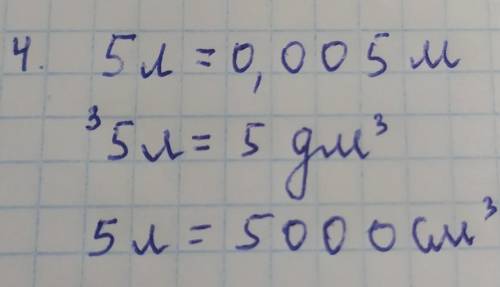 4. 5л = 0,005 м
³5л = 5 дм³
5л = 5000 см³